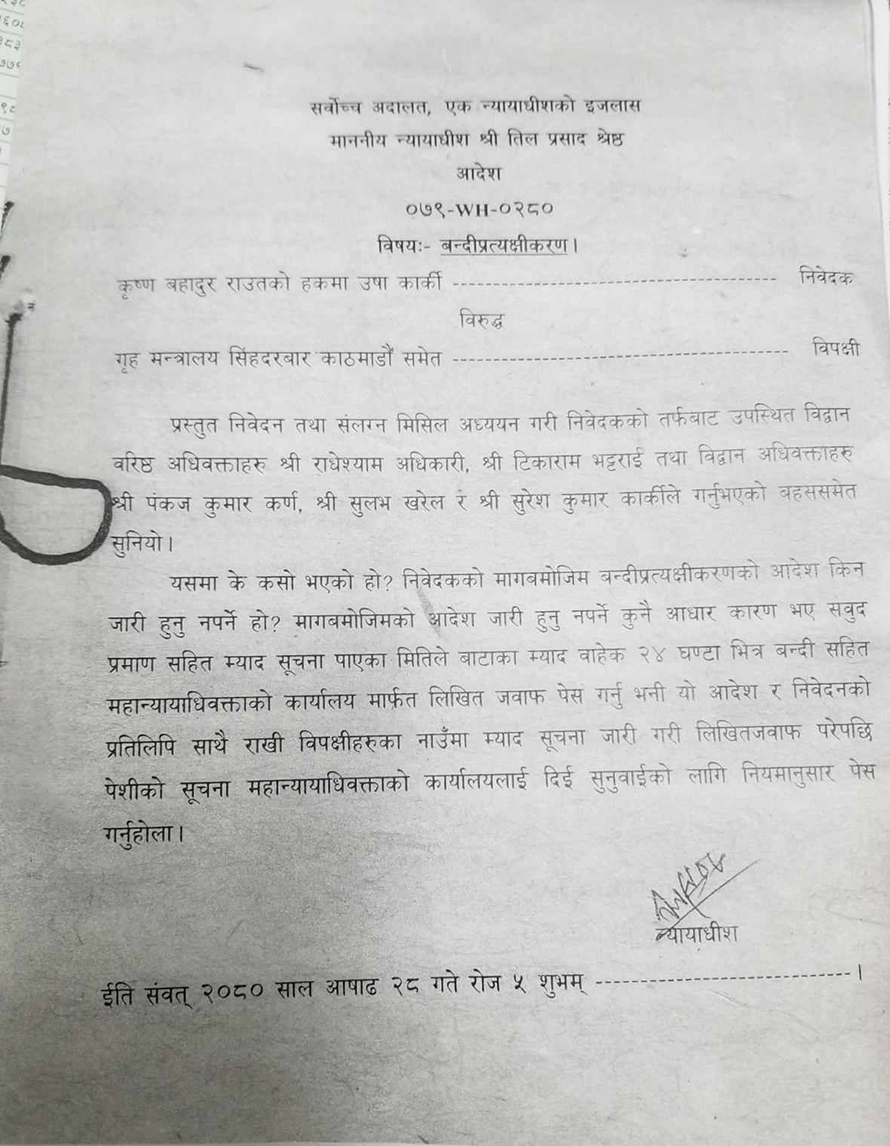 सर्वोच्च अदालत, एक न्यायाधीशको इजलास
माननीय न्यायाधीश श्री तिल प्रसाद श्रेष्ठ
आदेश
०७९-WH-०२८०
विषयः- बन्दीप्रत्यक्षीकरण।
कृष्ण बहादुर राउतको हकमा उषा कार्की ---------------------------------------- निवेदक
विरुद्ध
गृह मन्त्रालय सिंहदरबार काठमाडौं समेत ---------------------------------------- विपक्षी
प्रस्तुत निवेदन तथा संलग्न मिसिल अध्ययन गरी निवेदकको तर्फबाट उपस्थित विद्वान
वरिष्ठ अधिवक्ताहरु श्री राधेश्याम अधिकारी, श्री टिकाराम भट्टराई तथा विद्वान अधिवक्ताहरु
श्री पंकज कुमार कर्ण, श्री सुलभ खरेल र श्री सुरेश कुमार कार्कीले गर्नुभएको वहससमेत
सुनियो।
यसमा के कसो भएको हो? निवेदकको मागबमोजिम बन्दीप्रत्यक्षीकरणको आदेश किन
जारी हुनु नपर्ने हो? मागबमोजिमको आदेश जारी हुनु नपर्ने कुनै आधार कारण भए सवुद
प्रमाण सहित म्याद सूचना पाएका मितिले बाटाका म्याद वाहेक २४ घण्टा भित्र बन्दी सहित
महान्यायाधिवक्ताको कार्यालय मार्फत लिखित जवाफ पेस गर्नु भनी यो आदेश र निवेदनको
प्रतिलिपि साथै राखी विपक्षीहरुका नाउँमा म्याद सूचना जारी गरी लिखितजवाफ परेपछि
पेशीको सूचना महान्यायाधिवक्ताको कार्यालयलाई दिई सुनुवाईको लागि नियमानुसार पेस
गर्नुहोला।
न्यायाधीश
ईति संवत् २०८० साल आषाढ २८ गते रोज ५ शुभम् --------------------------------।